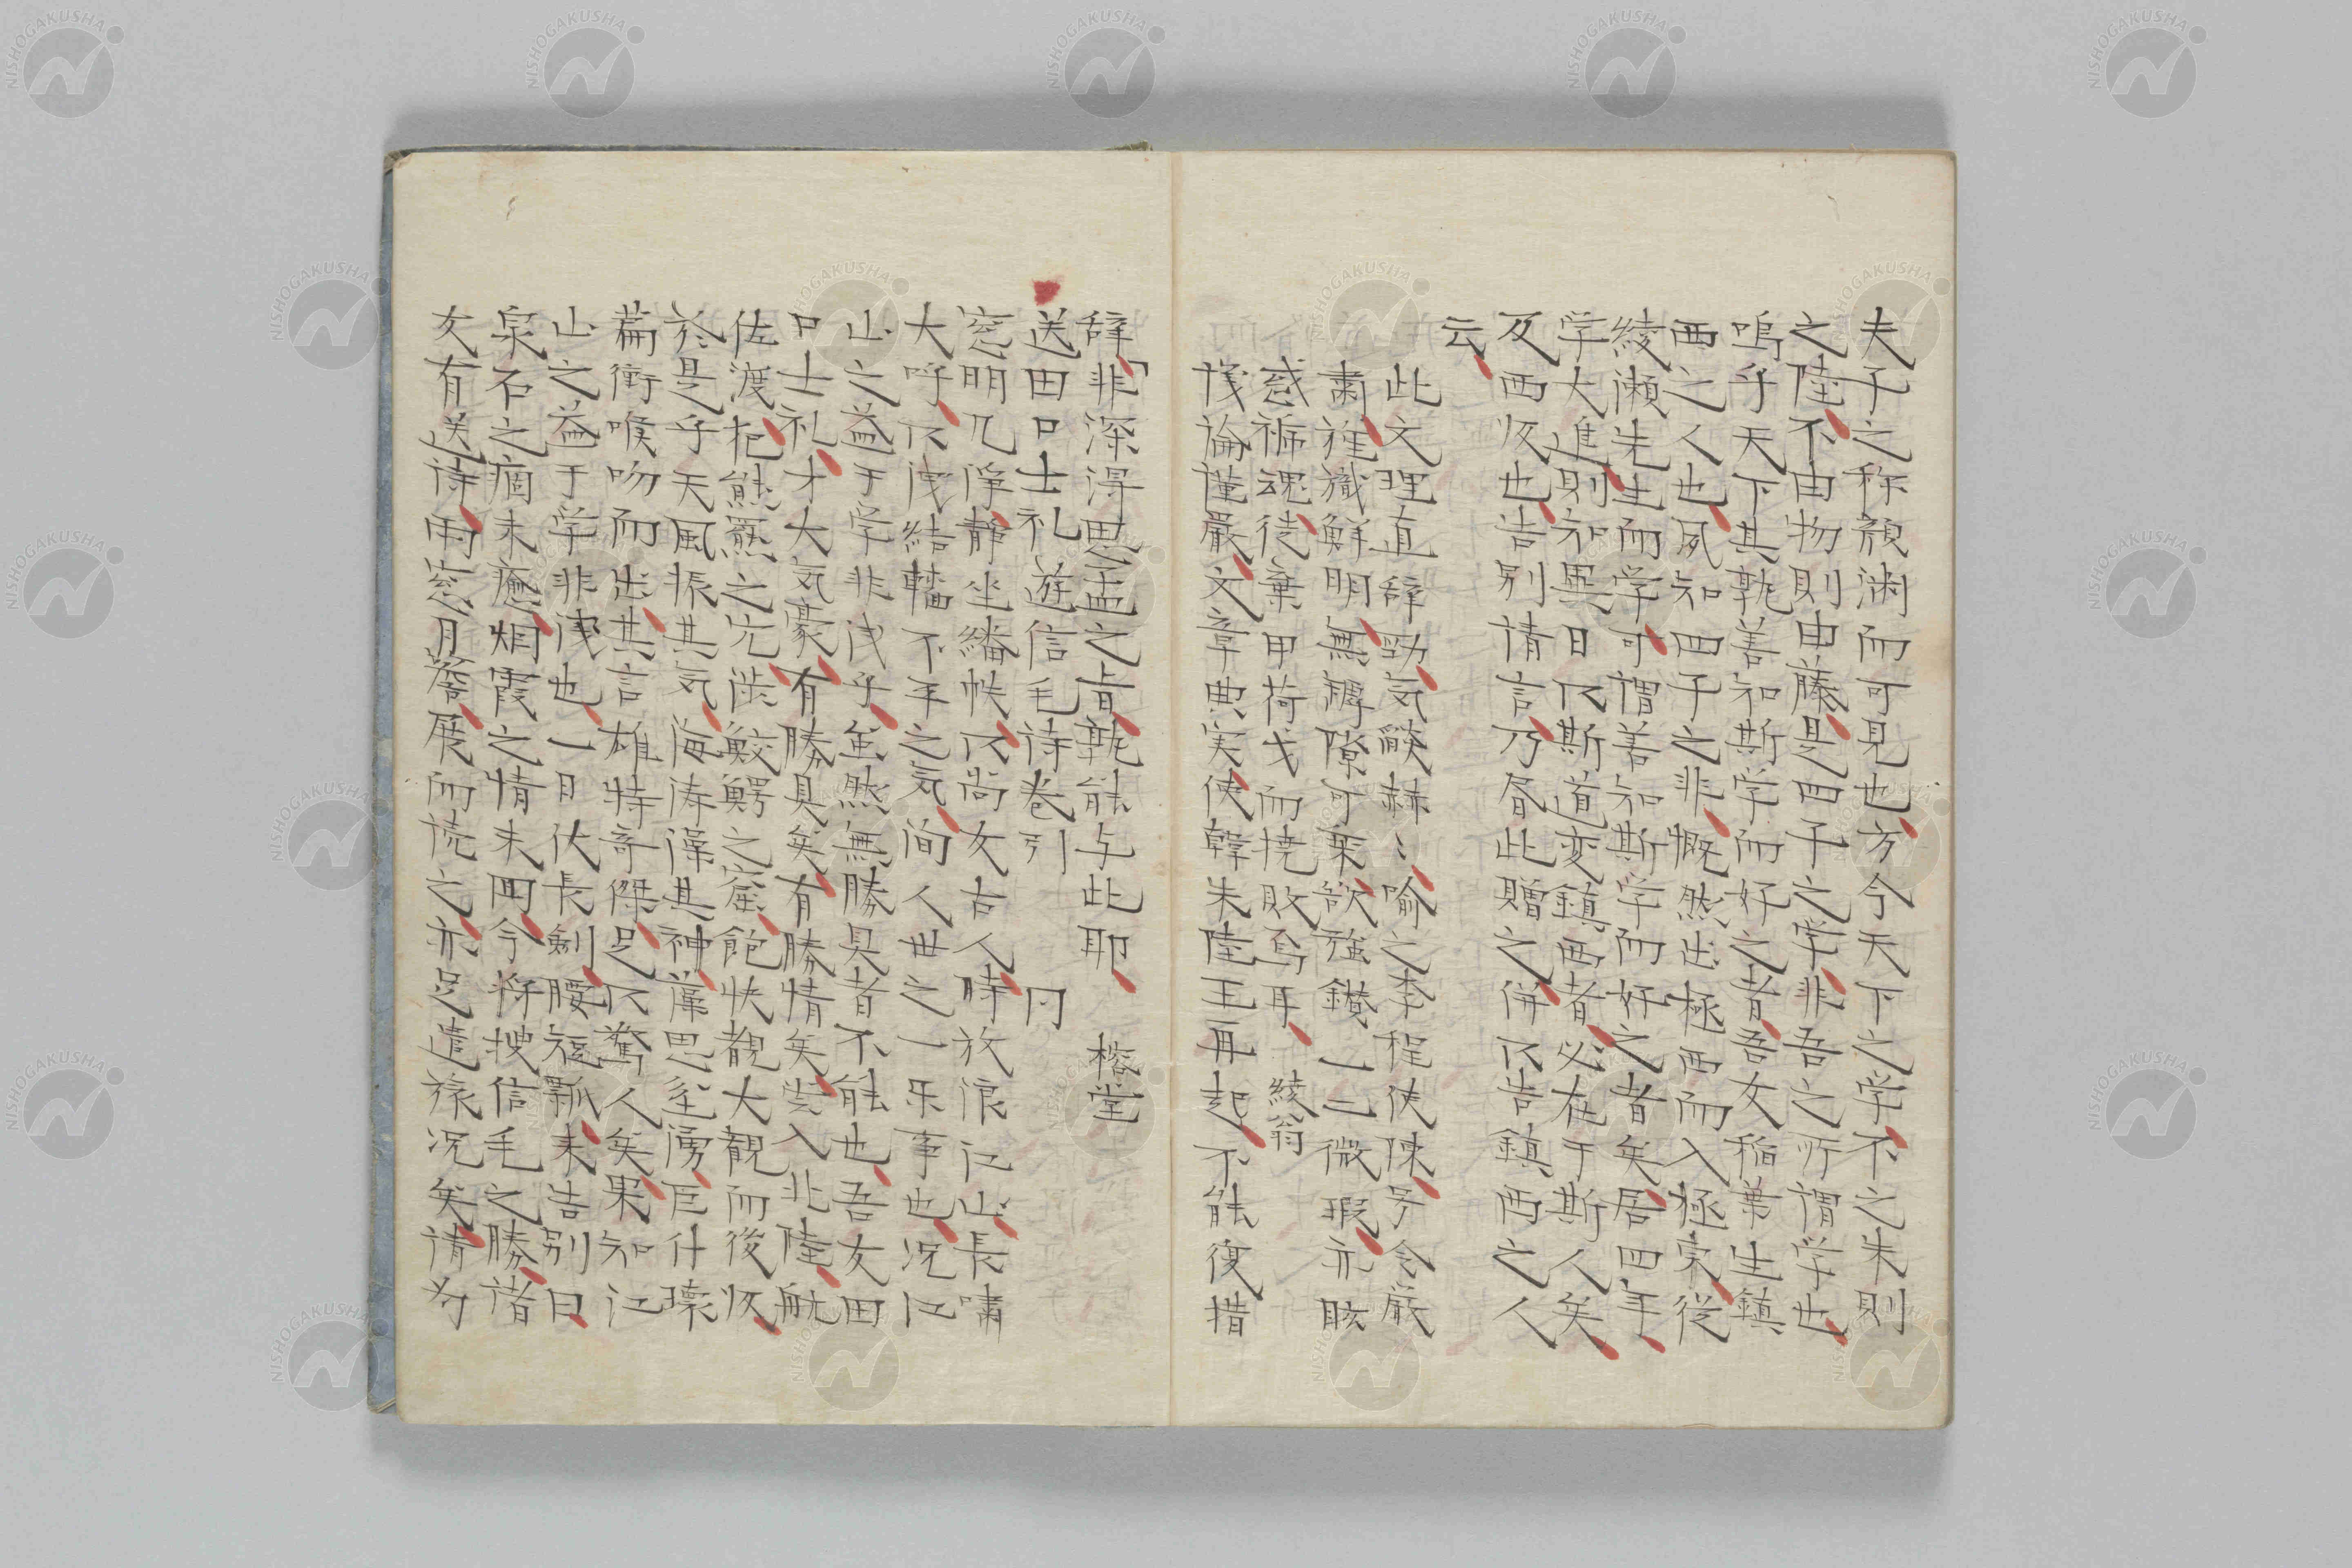 夫子之称顔渕而可見也方今天下之学不之朱則
之陸不由物則由藤是四子之学非吾之所謂学也
嗚乎天下其孰善知斯学而好之者吾友稲葉生鎮
西之人也夙知四子之非慨然出極西而入極東従
綾瀬先生而学可謂善知斯学而好之者矣居四年
学大進則知異日以斯道変鎮西者必在于斯人矣
及西帰也告別請言乃為此贈之併以告鎮西之人
云
此文理直辞勁気燄赫〻喩之李程使陳号令厳
粛旌幟鮮明無罅隙可乗欲強鑚一二微瑕亦眩
惑褫魂徒棄甲荷戈而撓敗焉耳 綾翁
議論謹厳文章典実使韓朱陸王再起不能復措
辞非深得思孟之旨孰能与此耶 榕堂
送田口士礼遊信毛詩巻引 円
窓明几浄静坐繙帙以尚友古人時放浪江山長嘯
大呼以洩結轖不平之気洵人世之一楽事也況江
山之益于学非浅乎然無勝具者不能也吾友田
口士礼才大気豪有勝具矣有勝情矣嘗入北陸航
佐渡 熊羆之穴 鮫鰐之窟飽快観大観而後帰
於是乎天風振其気海涛澡其神藻思坌湧巨什瓌
篇衝喉吻而出其言雄特奇傑足以驚人矣果知江
山之益于学非浅也一日伏長剣腰短瓢来告別曰
泉石之痼未癒烟霞之情未四今将捜信毛之勝諸
友有送詩雨窓月簷展而読之亦足遣旅況矣請為